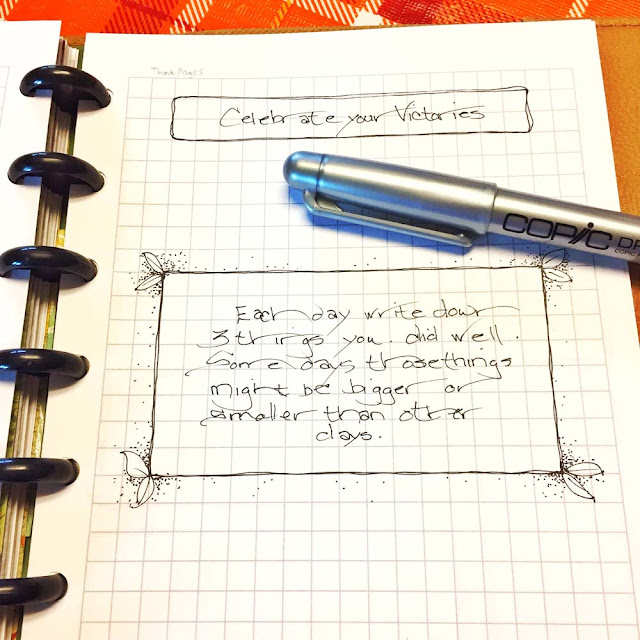 Think Pages
Celebrate your Victories
COPIC
Each day write down
3 things you did well.
Some days those things
might be bigger or
smaller than other
days.